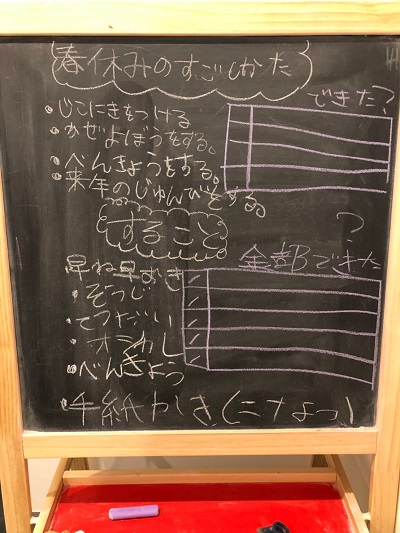 春休みのすごしかた
・じこにきをつける
・かぜよぼうをする。
・べんきょうをする。
・来年のじゅんびをする。
できた?
すること
?
早ね早おき
全部できた
・そうじ
・てつだい
・べんきょう
・手紙かき(二十よっ)